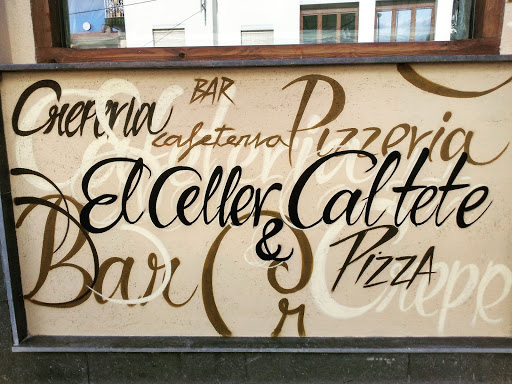 BAR
Creperia
cafetería Pizzeria
El Celler Cal tete
&
Bar
PIZZA
Crepe